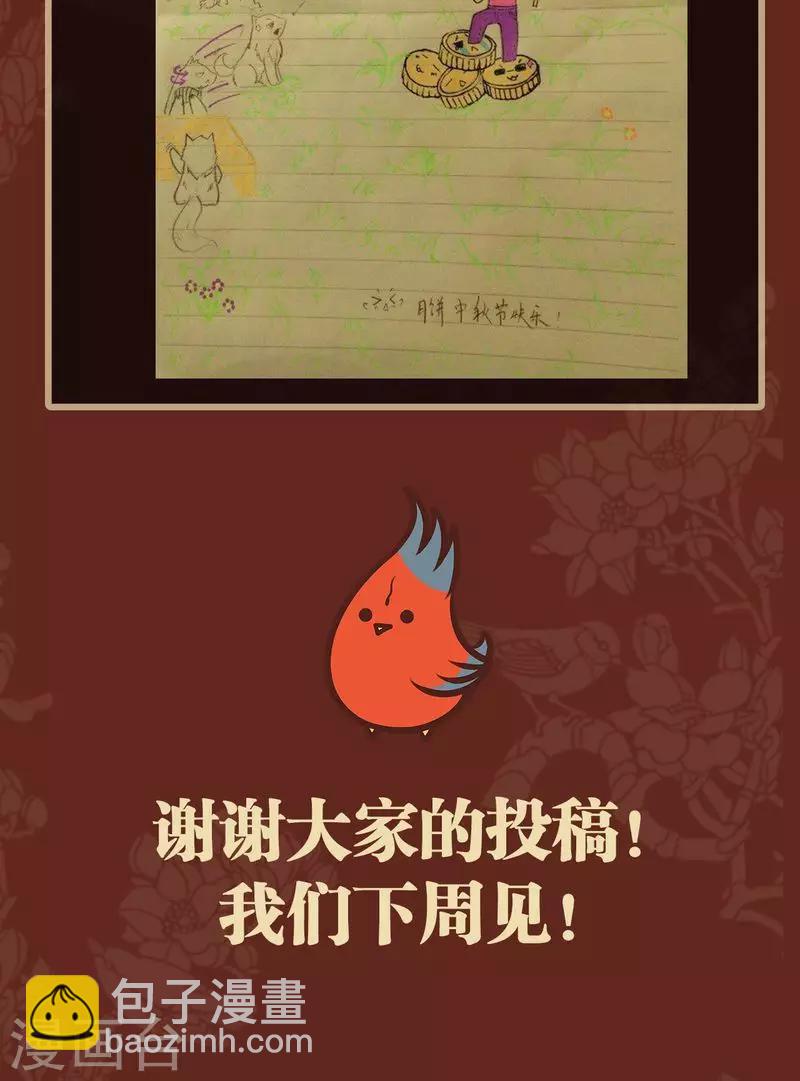 月饼中秋节快乐！
谢谢大家的投稿！
我们下周见！
包子漫畫
baozimh.com
漫画台